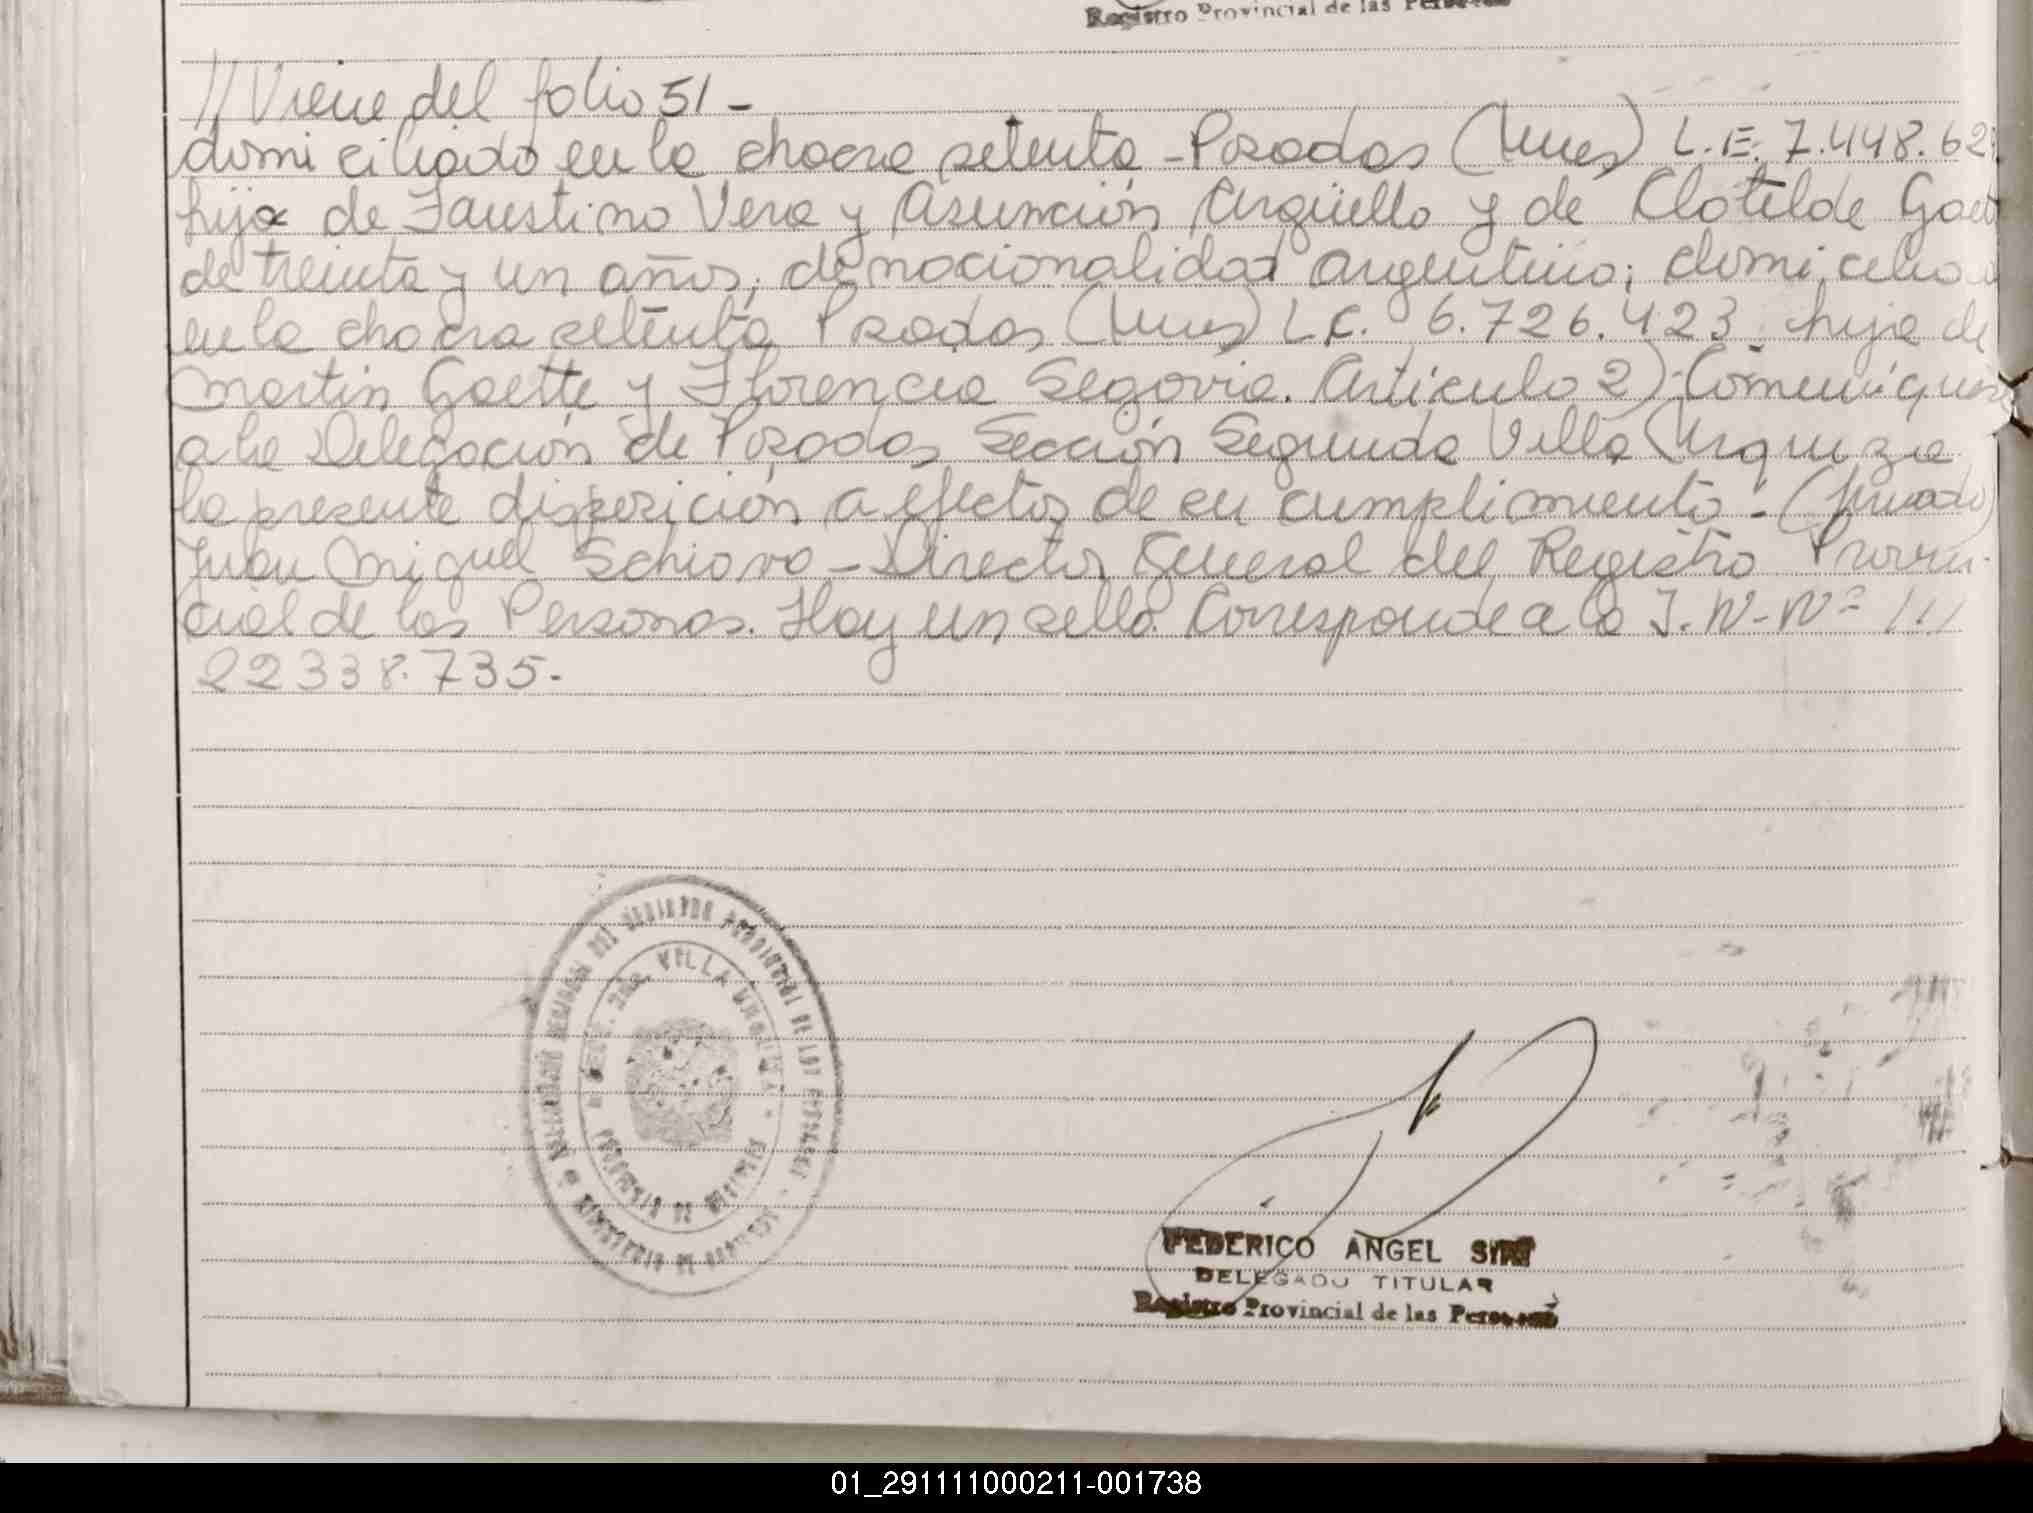 Registro Provincial de las Personas
//Viene del folio 51-
domiciliado en la chacra setenta-Posadas (Mnes) L.E. 7.448.62
hijo de Faustino Vera y Asunción Argüello y de Clotilde Gaett
de treinta y un años; de nacionalidad argentina; domiciliada
en la chacra setenta Posadas (Mnes) L.C. 6.726.423 hija de
Martin Gaette y Florencia Segovia. Artículo 2) Comuniquese
a la Delegación de Posadas Sección Segunda Villa Urquiza
la presente disposición a efectos de su cumplimiento.- (firmado)
Juan Miguel Schiavo-Director General del Registro Provin-
cial de las Personas. Hay un sello. Corresponde a la I.N-Nº ///
22338.735.-
VILLA URQUIZA
PROVINCIA DE MISIONES
FEDERICO ANGEL
DELEGADO TITULAR
Registro Provincial de las Personas
01_291111000211-001738